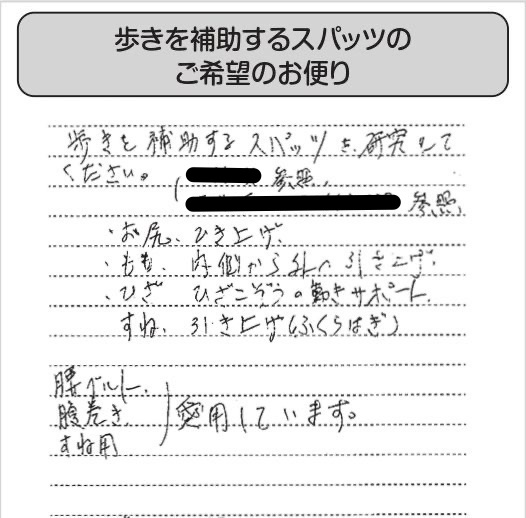 歩きを補助するスパッツの
ご希望のお便り
歩きを補助するスパッツを研究して
ください。
参照、
参照、
・お尻、ひき上げ、
・もも、内側から外へ引き上げ、
・ひざ ひざこぞうの動きサポート、
すね、引き上げ(ふくらはぎ)
腰ベルト、
腹巻き
すね用
愛用しています。